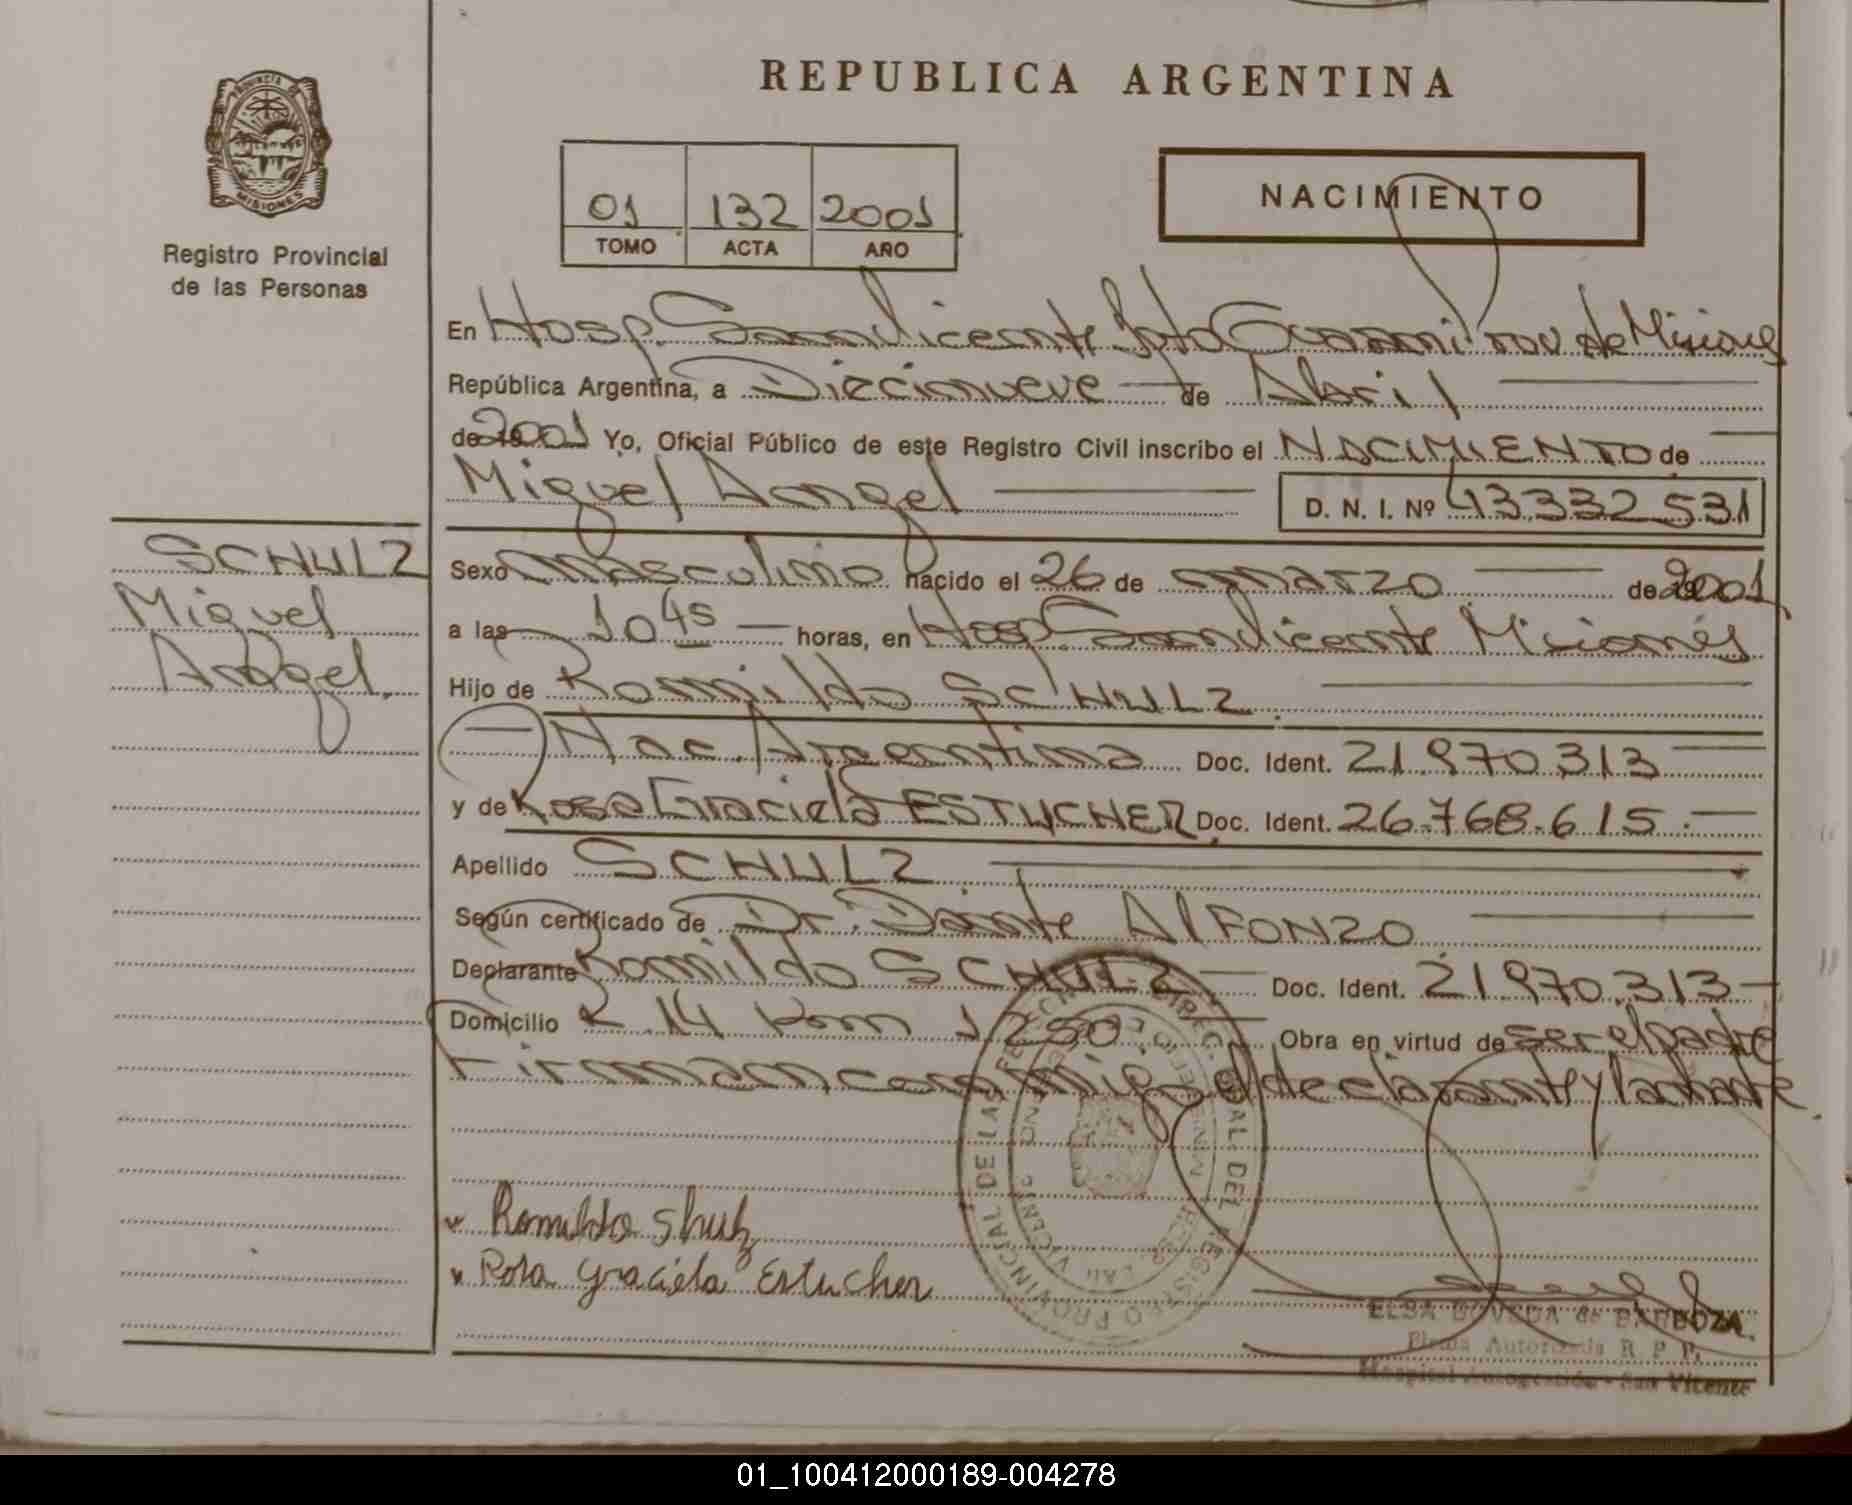 PROVINCIA DE
MISIONES
Registro Provincial
de las Personas
REPUBLICA ARGENTINA
01 132 2001
TOMO ACTA AÑO
NACIMIENTO
En Hosp. San Vicente Dpto Guaraní Prov de Misiones
República Argentina, a Diecinueve de Abril
de 2001 Yo, Oficial Público de este Registro Civil inscribo el NACIMIENTO de
Miguel Angel D. N. I. Nº 43332531
SCHULZ
Miguel
Angel.
Sexo Masculino nacido el 26 de marzo de 2001
a las 10 45 horas, en Hosp San Vicente Misiones
Hijo de Romildo SCHULZ
Nac. Argentina Doc. Ident. 21.970.313
y de Rosa Graciela ESTUCHER Doc. Ident. 26.768.615.
Apellido SCHULZ
Según certificado de Dr. Dante AlFONZO
Declarante Romildo SCHULZ Doc. Ident. 21.970.313
Domicilio R.14 Km 1250 Obra en virtud de ser el padre
Firman conmigo el declarante y la madre.
Romildo Shulz
Rosa Graciela Estucher
ELSA BOVEDA de BARBOZA
Firma Autorizada R. P. P.
Hospital Autogestión - San Vicente
01_100412000189-004278